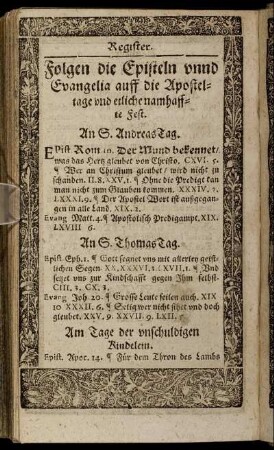 Register.
Folgen die Episteln vnnd
Evangelia auff die Apostel-
tage vnd etliche namhaff-
te Fest.
An S. AndreasTag.
Epist Rom 10. Der Mund bekennet/
was das Hertz gleubet von Christo. CXVI. 5.
¶ Wer an Christum gleubet/ wird nicht zu
schanden. II.8. XXV.1. ¶ Ohne die Predigt kan
man nicht zum Glauben kommen. XXXIV. 2.
LXXXI.9. ¶ Der Apostel Wort ist außgegan-
gen in alle Land. XIX. 2.
Evang Matt. 4. ¶ Apostolisch Predigampt. XIX.
LXVIII 6
An S. ThomasTag.
Epist. Eph. 1. ¶ Gott segnet vns mit allerley geist-
lichen Segen XX. XXXVI. LXVII. 1. ¶ Vnd
setzet vns zur Kindschafft gegen Ihm selbst.
CIII, 2. CX. 8.
Evang Joh. 20. ¶ Grosse Leute feilen auch. XIX
10 XXXII. 6. ¶ Selig wer nicht sihet vnd doch
gleubet. XXV. 9. XXVII. 9. LXII.
Am Tage der vnschuldigen
Kindelein.
Epist. Apoc. 14. ¶ Für dem Thron des Lambs